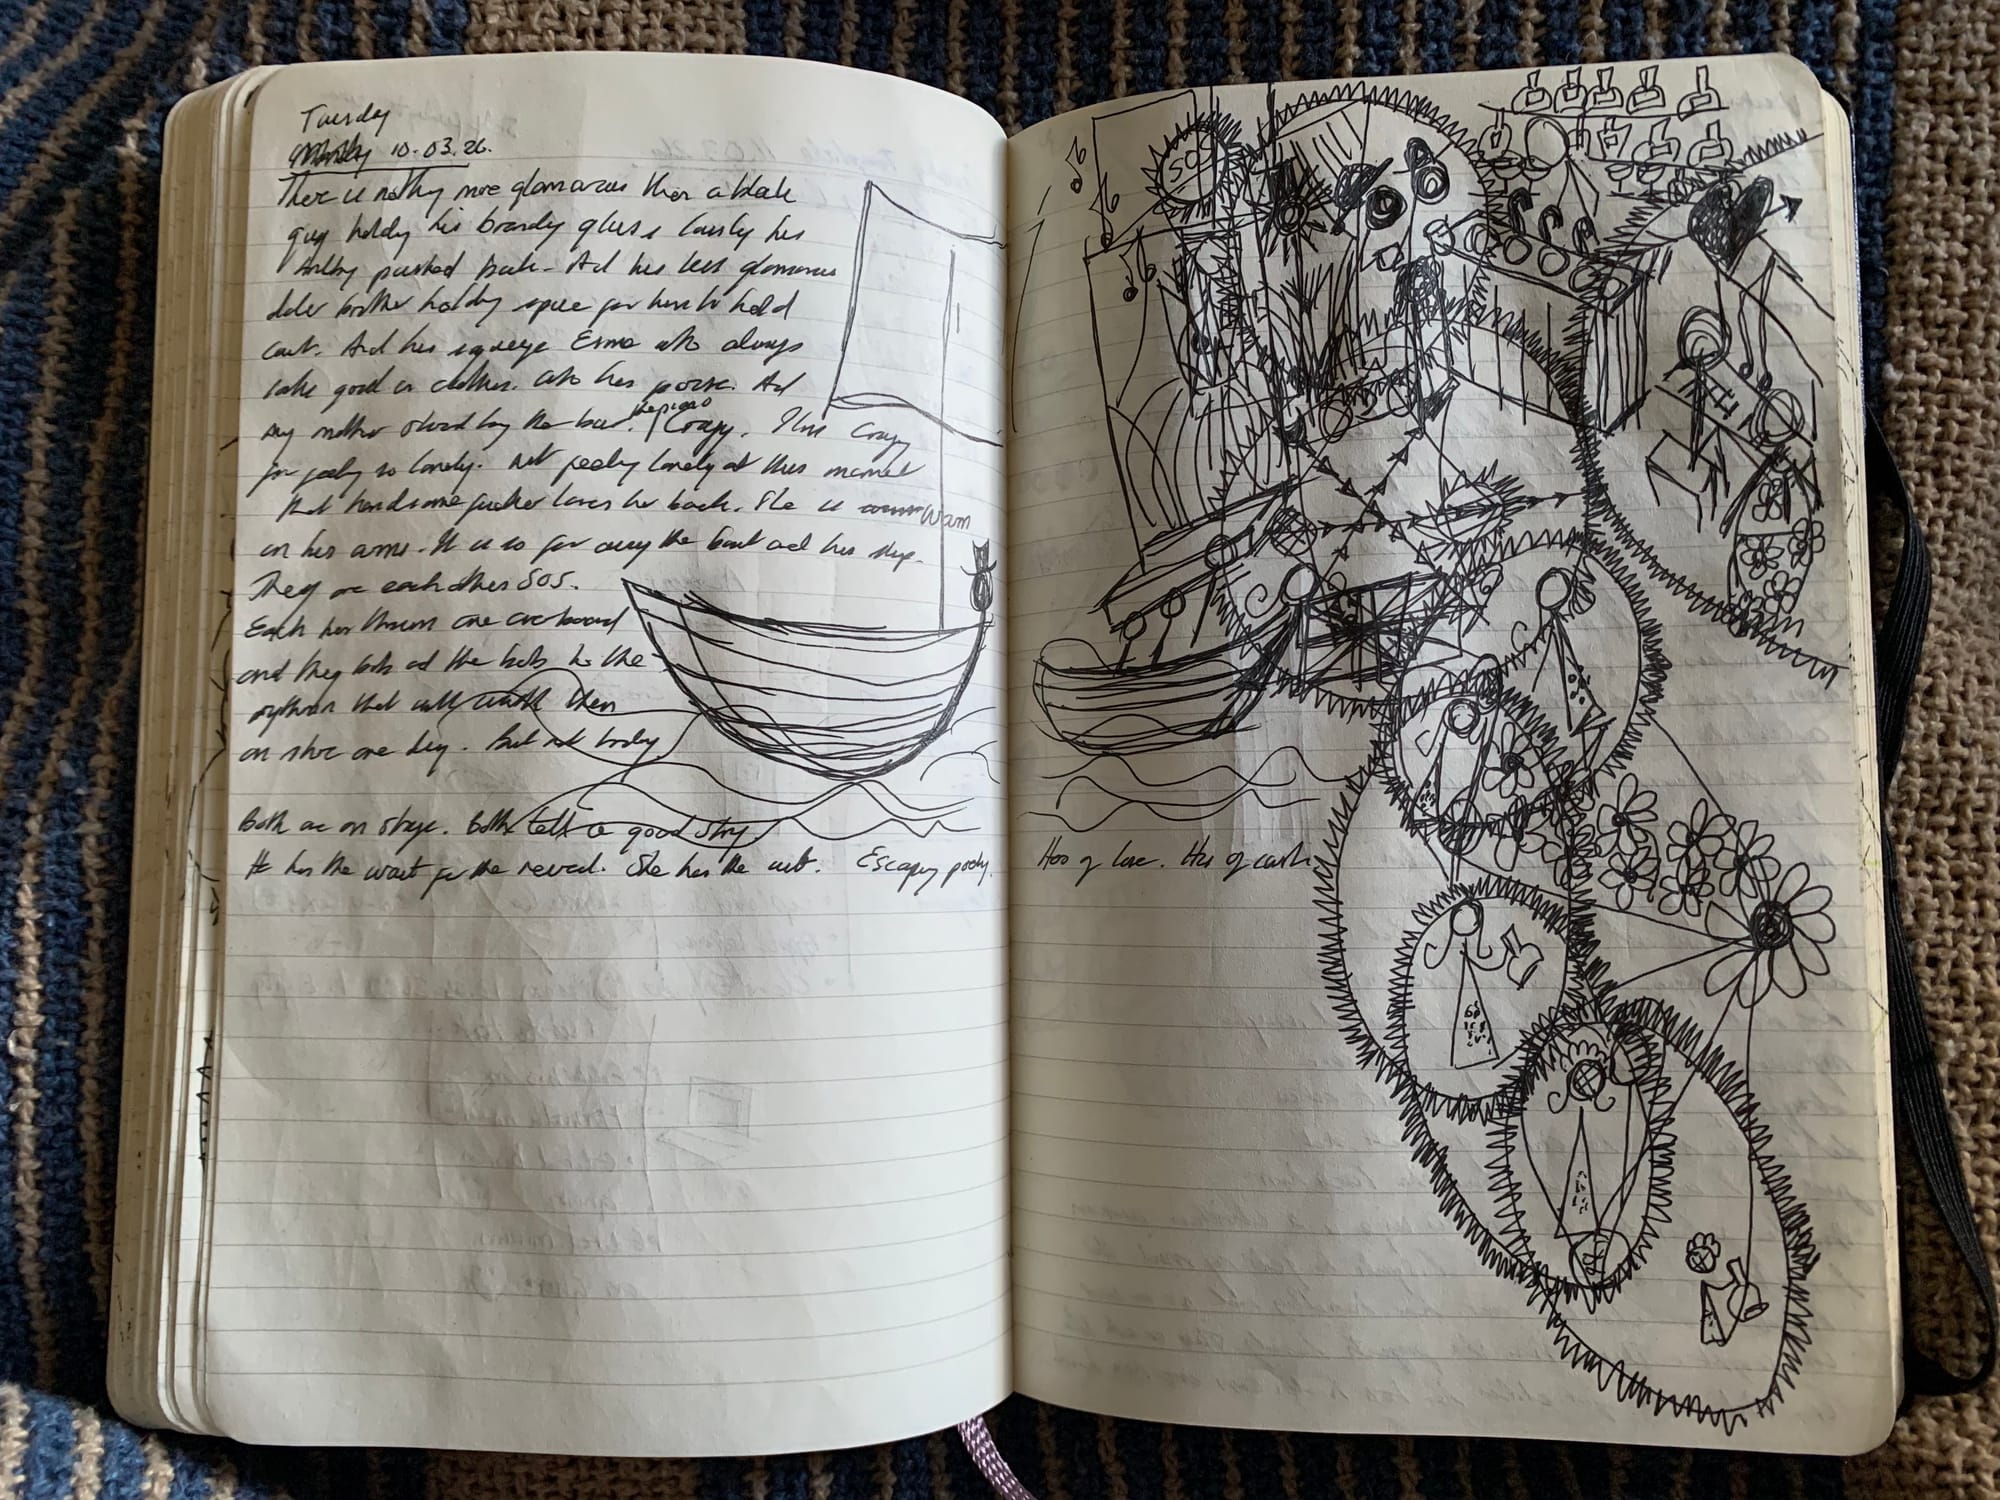 Tuesday
10.03.26.
There is nothing more glamorous than a black
guy holding his brandy glass loosely his
pushed back. And his less glamorous
older brother holding space for him to hold
court. And his squeeze Esme who always
look good in clothes. And
my mother stood by the bar. the piano Crazy. I'm crazy
for feeling so lonely. Not feeling lonely at this moment
that handsome fucker loves her back. She is warm
in his arms. It is so far away the boat and his ship.
They are each others SOS.
Each has thrown one overboard
and they both
rythmn that will them
on shore one day. But not today
Both are on stage. Both tell a good story
He has the wait for the reveal. She has the cut. Escaping poverty.
Has of love. Has of cash
SOS